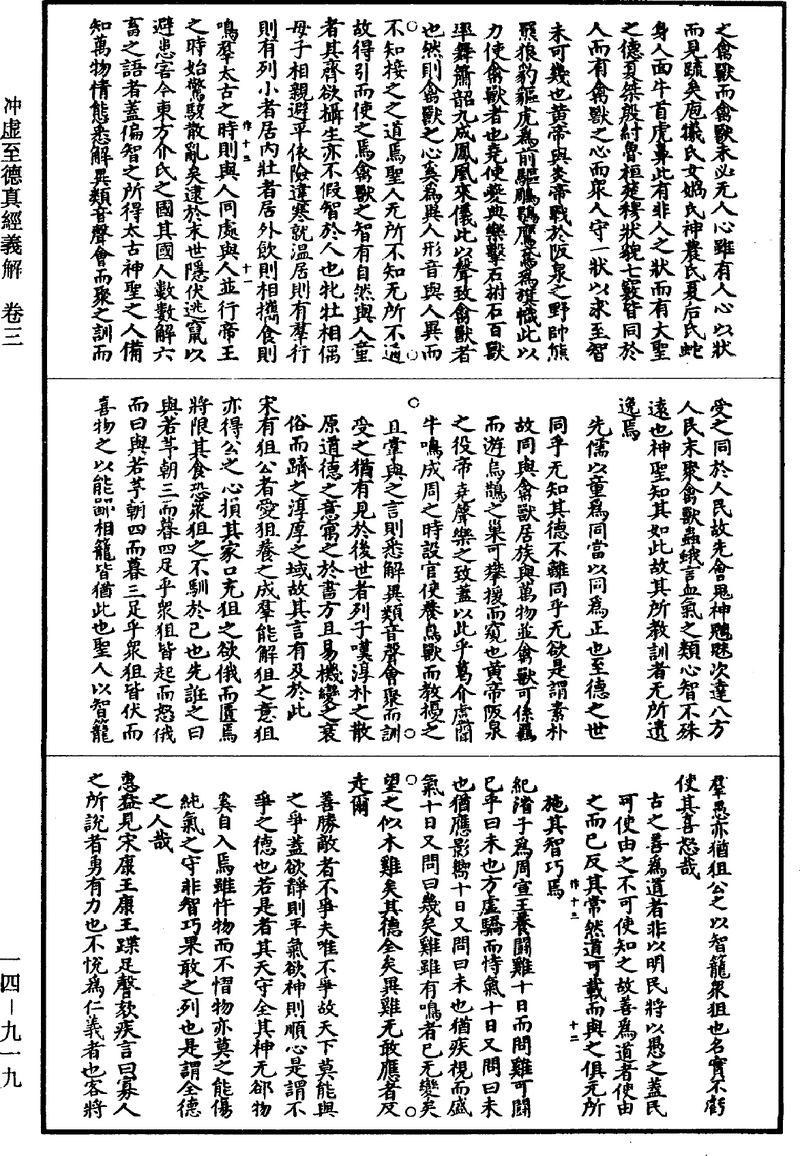 之禽獸而禽獸未必无人心雖有人心以狀
而見疏矣庖犧氏女媧氏神農氏夏后氏蛇
身人面牛首虎鼻此有非人之狀而有大聖
之德夏桀殷紂魯桓楚穆狀貌七竅皆同於
人而有禽獸之心而衆人守一狀以求至智
未可幾也黃帝與炎帝戰於阪泉之野帥熊
羆狼豹貙虎為前驅鵰鶡鷹鳶為旗幟此以
力使禽獸者也堯使夔典樂擊石拊石百獸
率舞簫韶九成鳳凰來儀此以聲致禽獸者
也然則禽獸之心奚為異人形音與人異而
不知接之之道焉聖人无所不知无所不通
故得引而使之焉禽獸之智有自然與人童
者其齊欲攝生亦不假智於人也牝牡相偶
母子相親避平依險違寒就溫居則有羣行
則有列小者居內壯者居外飲則相攜食則
鳴羣太古之時則與人同處與人並行帝王
之時始驚駭散亂矣逮於末世隱伏逃竄以
避患害今東方介氏之國其國人數數解六
畜之語者蓋偏智之所得太古神聖之人備
知萬物情態悉解異類音聲會而聚之訓而
受之同於人民故先會鬼神魑魅次達八方
人民末聚禽獸蟲蛾言血氣之類心智不殊
遠也神聖知其如此故其所教訓者无所遺
逸焉
先儒以童為同當以同為正也至德之世
同乎无知其德不離同乎无欲是謂素朴
故同與禽獸居族與萬物並禽獸可係羈
而遊烏鵲之巢可攀援而窺也黃帝阪泉
之役帝堯聲樂之致蓋以此乎葛介盧聞
牛鳴成周之時設官使養鳥獸而教擾之
且掌與之言則悉解異類音聲會聚而訓
受之猶有見於後世者列子嘆淳朴之散
原道德之意寓之於書方且易機變之衰
俗而躋之淳厚之域故其言有及於此
宋有狙公者愛狙養之成羣能解狙之意狙
亦得公之心損其家口充狙之欲俄而匱焉
將限其食恐衆狙之不馴於己也先誑之曰
與若芧朝三而暮四足乎衆狙皆起而怒俄
而曰與若芧朝四而暮三足乎衆狙皆伏而
喜物之以能鄙相籠皆猶此也聖人以智籠
羣愚亦猶狙公之以智籠衆狙也名實不虧
使其喜怒哉
古之善為道者非以明民將以愚之蓋民
可使由之不可使知之故善為道者使由
之而已反其常然道可載而與之俱无所
施其智巧焉
紀渻子為周宣王養鬪雞十日而問雞可鬪
已乎曰未也方虛驕而恃氣十日又問曰未
也猶應影嚮十日又問曰未也猶疾視而盛
氣十日又問曰幾矣雞雖有鳴者已无變矣
望之似木雞矣其德全矣異雞无敢應者反
走爾
善勝敵者不爭夫唯不爭故天下莫能與
之爭蓋欲靜則平氣欲神則順心是謂不
爭之德也若是者其天守全其神无郤物
奚自入焉雖忤物而不慴物亦莫之能傷
純氣之守非智巧果敢之列也是謂全德
之人哉
惠盎見宋康王康王蹀足謦欬疾言曰寡人
之所說者勇有力也不悅為仁義者也客將
冲虛至德真經義解 卷三
一四—九一九
作十三
十一
作十三
十二